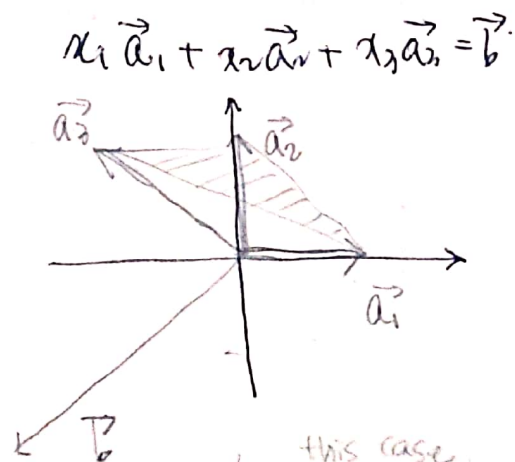 x₁a⃗₁ + x₂a⃗₂ + x₃a⃗₃ = b⃗
a⃗₃
a⃗₂
a⃗₁
b⃗
this case